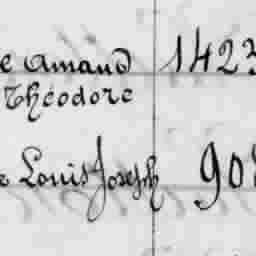 e Amand 1423
Théodore
e Louis Joseph 908